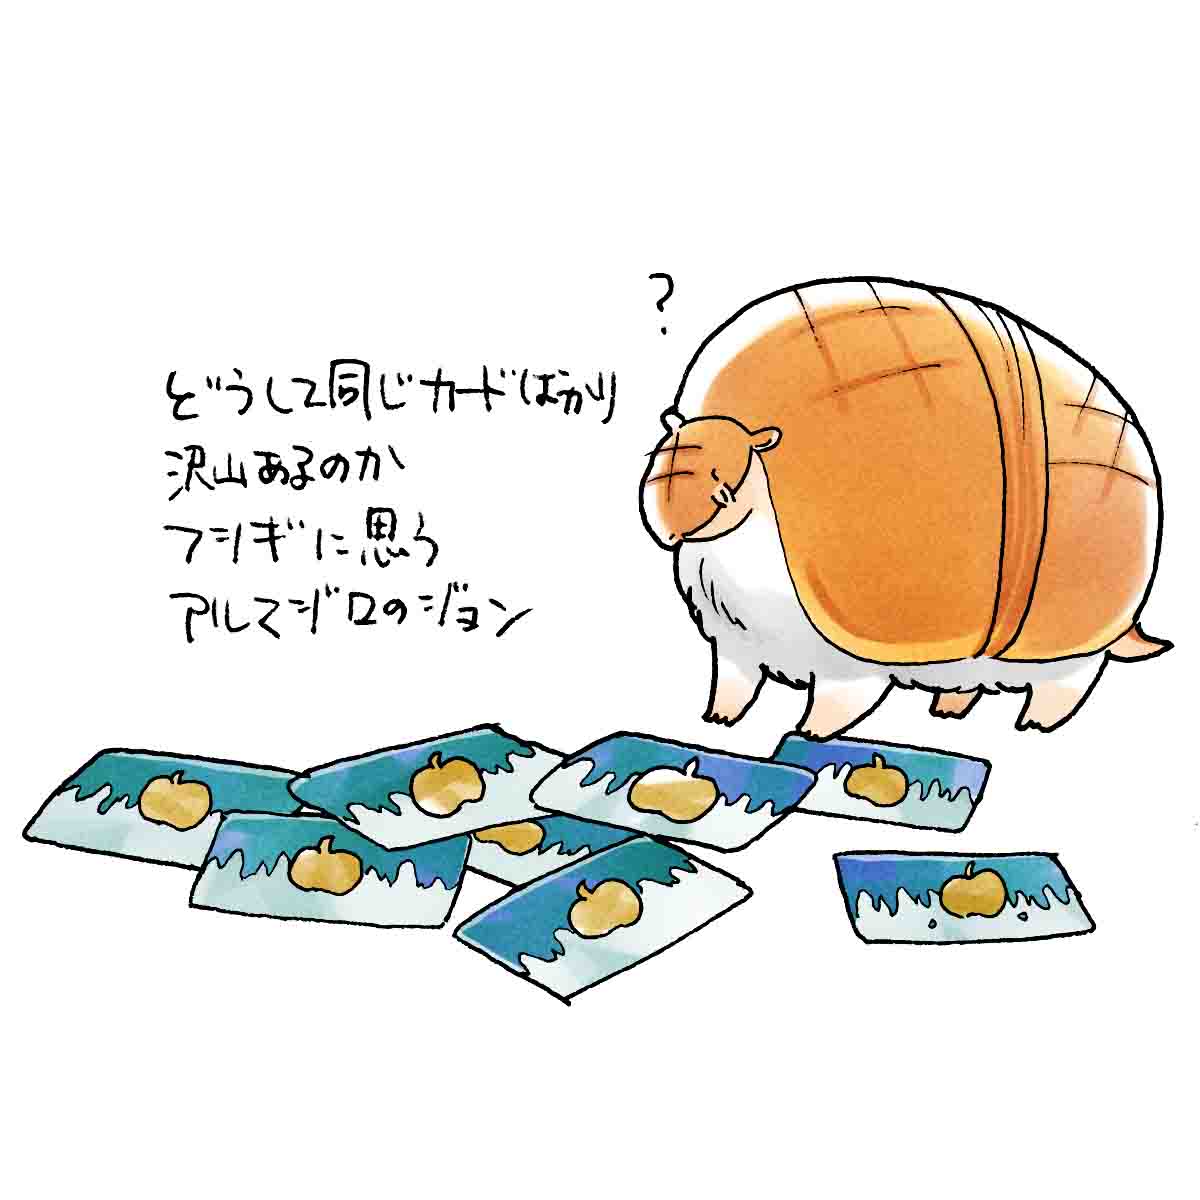 ?
どうして同じカードばかり
沢山あるのか
フシギに思う
アルマジロのジョン